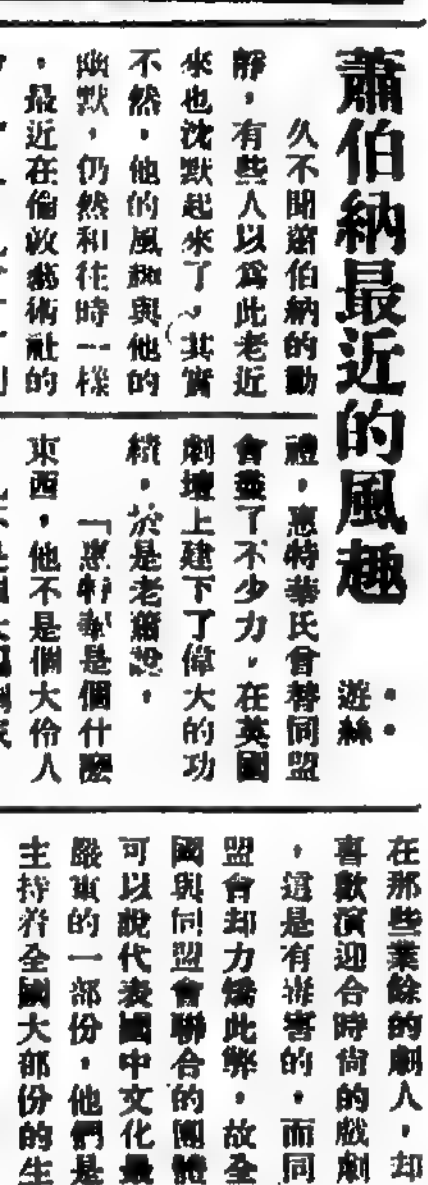 蕭伯納最近的風趣
遊絲
久不聞蕭伯納的動
靜,有些人以為此老近
來也沈默起來了,其實
不然,他的風趣與他的
幽默,仍然和往時一樣
,最近在倫敦藝術社的
禮,惠特華氏曾替同盟
會盡了不少力,在英國
劇壇上建下了偉大的功
績,於是老蕭說,
「惠特華是個什麼
東西,他不是個大伶人
在那些業餘的劇人,却
喜歡演迎合時尚的戲劇
,這是有弊害的,而同
盟會却力矯此弊,故全
國與同盟會聯合的團體
可以說代表國中文化最
嚴重的一部份,他們是
主持着全國大部份的生